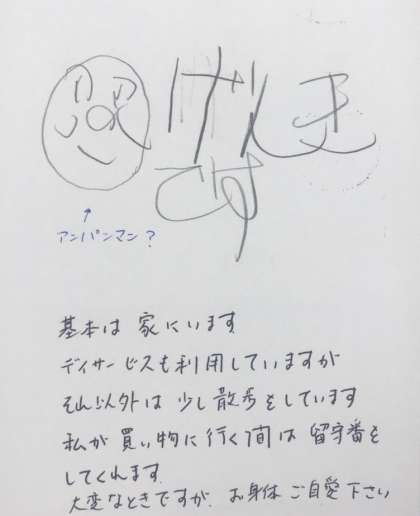 げんき
です
↑
アンパンマン?
基本は 家にいます
デイサービスも利用していますが
それ以外は 少し散歩をしています
私が 買い物に行く間は 留守番を
してくれます
大変なときですが、お身体 ご自愛下さい